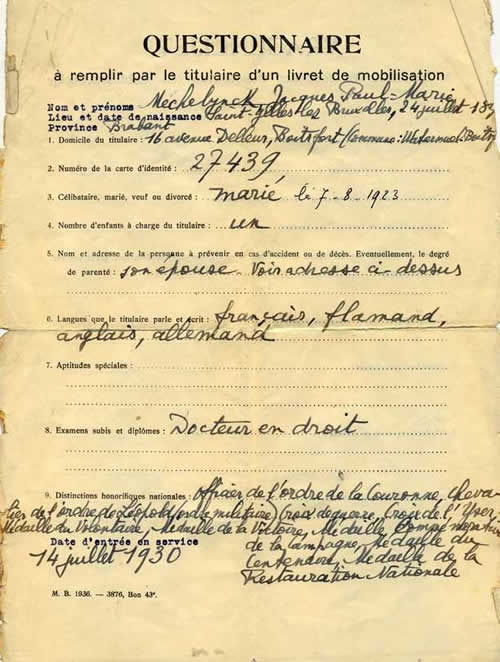 QUESTIONNAIRE
à remplir par le titulaire d'un livret de mobilisation
Nom et prénoms Mechelynck, Jacques Paul-Marie
Lieu et date de naissance Saint-Gilles-lez Bruxelles, 24 juillet 18
Province Brabant
1. Domicile du titulaire : 16 avenue Delleur, Boitsfort (Commune :
2. Numéro de la carte d'identité : 27439,
3. Célibataire, marié, veuf ou divorcé : marié, le 7-8-1923
4. Nombre d'enfants à charge du titulaire : un
5. Nom et adresse de la personne à prévenir en cas d'accident ou de décès. Eventuellement, le degré
de parenté : son épouse. Voir adresse ci-dessus
6. Langues que le titulaire parle et écrit : français, flamand,
anglais, allemand
7. Aptitudes spéciales :
8. Examens subis et diplômes : Docteur en droit
9. Distinctions honorifiques nationales : officier de l'ordre de la Couronne, cheva-
lier de l'ordre de Léopold (ordre militaire) Croix de guerre, Croix de l'Yser,
Médaille du Volontaire, Médaille de la Victoire, Médaille Commémorative
de la campagne, Médaille du
Date d'entrée en service
14 juillet 1930
Centenaire, Médaille de la
Restauration Nationale
M. B. 1936. — 3876, Bon 43ᵉ.